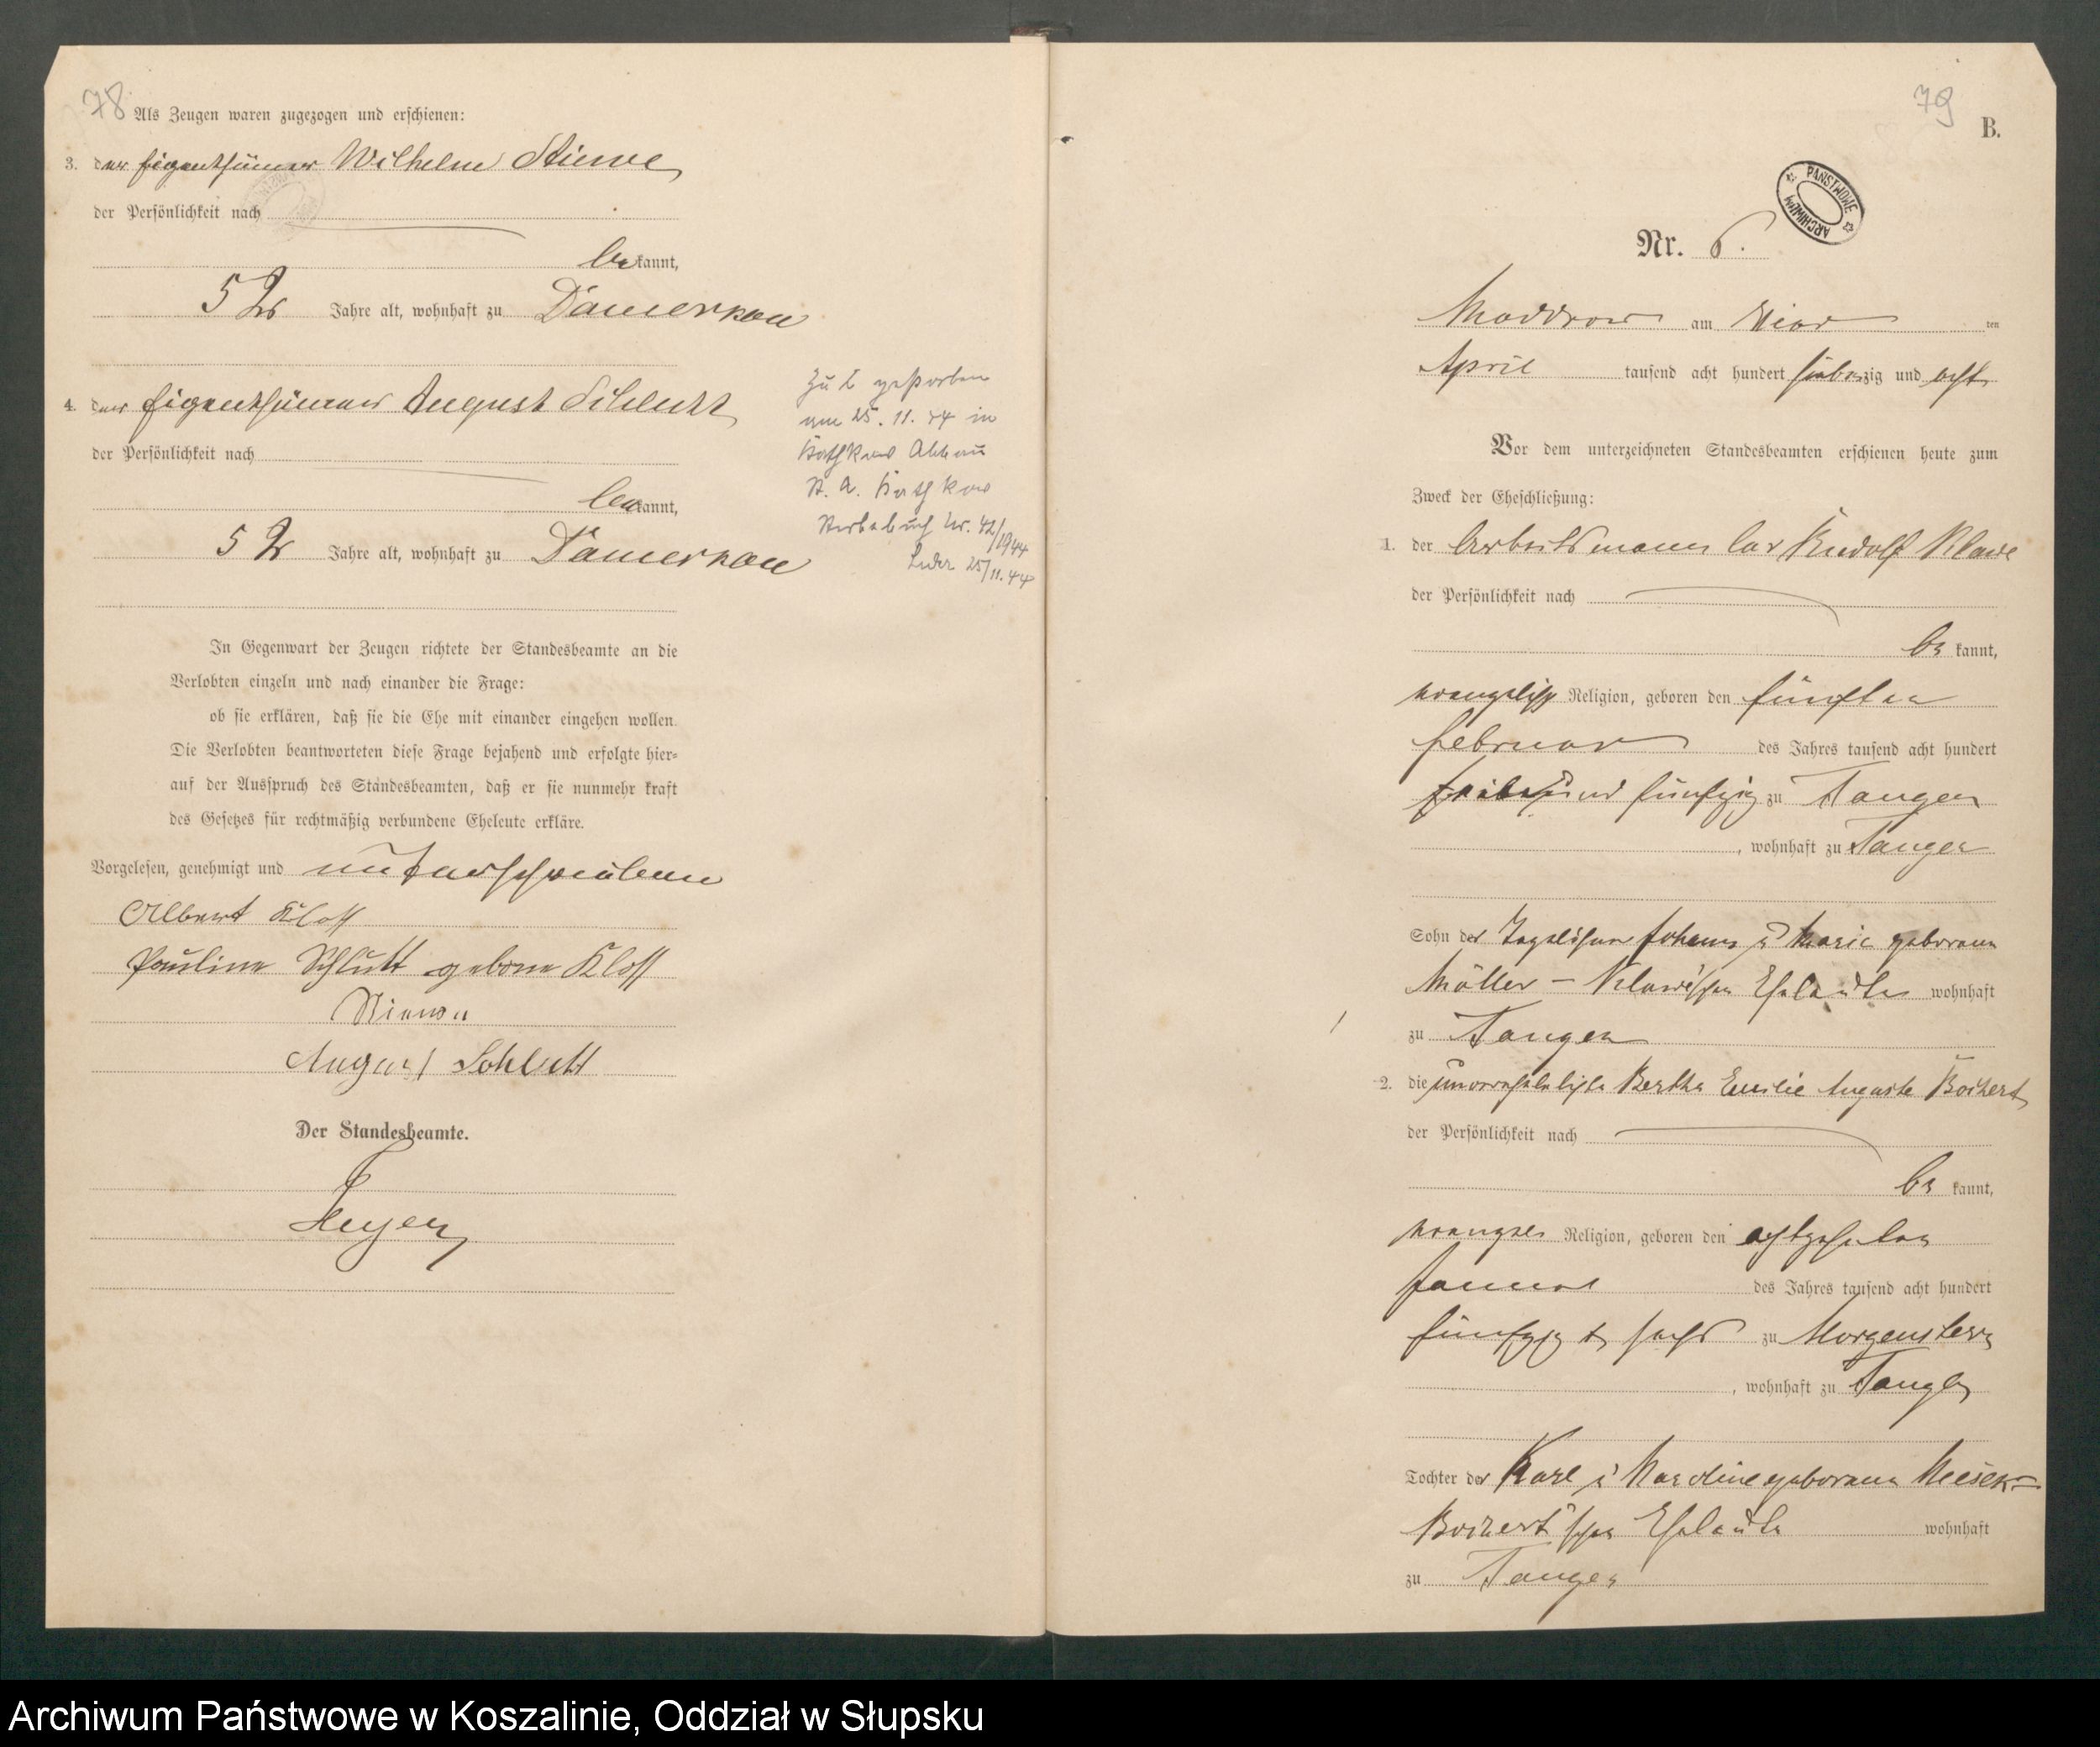 78
Als Zeugen waren zugezogen und erschienen:
3. der Eigenthümer Wilhelm Stiewe
der Persönlichkeit nach
bekannt,
52 Jahre alt, wohnhaft zu Damerkow
4. der Eigenthümer August Schlutt
der Persönlichkeit nach
bekannt,
52 Jahre alt, wohnhaft zu Damerkow
Zu 2 gestorben
am 25. 11. 44 in
St. A.
Sterbebuch Nr. 42/1944
25/11. 44
In Gegenwart der Zeugen richtete der Standesbeamte an die
Verlobten einzeln und nach einander die Frage:
ob sie erklären, daß sie die Ehe mit einander eingehen wollen.
Die Verlobten beantworteten diese Frage bejahend und erfolgte hier-
auf der Ausspruch des Standesbeamten, daß er sie nunmehr kraft
des Gesetzes für rechtmäßig verbundene Eheleute erkläre.
Vorgelesen, genehmigt und unterschrieben
Albert Kloss
Pauline Schlutt geborne Kloss
Stiewe
August Schlutt
Der Standesbeamte.
79
B.
PAŃSTWOWE ARCHIWUM
Nr. 6.
Moddrow am vier ten
April tausend acht hundert siebenzig und acht
Vor dem unterzeichneten Standesbeamten erschienen heute zum
Zweck der Eheschließung:
1. der Arbeitsmann Rudolf Klawe
der Persönlichkeit nach
bekannt,
evangelisch Religion, geboren den fünften
Februar des Jahres tausend acht hundert
und fünfzig zu Tangen
, wohnhaft zu Tangen
Sohn der Tagelöhner Johann u Marie geborene
Möller - Klaweschen Eheleute wohnhaft
zu Tangen
2. die unverehelichte Bertha Emilie Auguste Boikert
der Persönlichkeit nach
bekannt,
evangel Religion, geboren den achtzehnten
Januar des Jahres tausend acht hundert
fünfzig u sechs zu Morgenstern
, wohnhaft zu Tangen
Tochter der Karl u Karoline geborene
Boikert'schen Eheleute wohnhaft
zu Tangen
Archiwum Państwowe w Koszalinie, Oddział w Słupsku